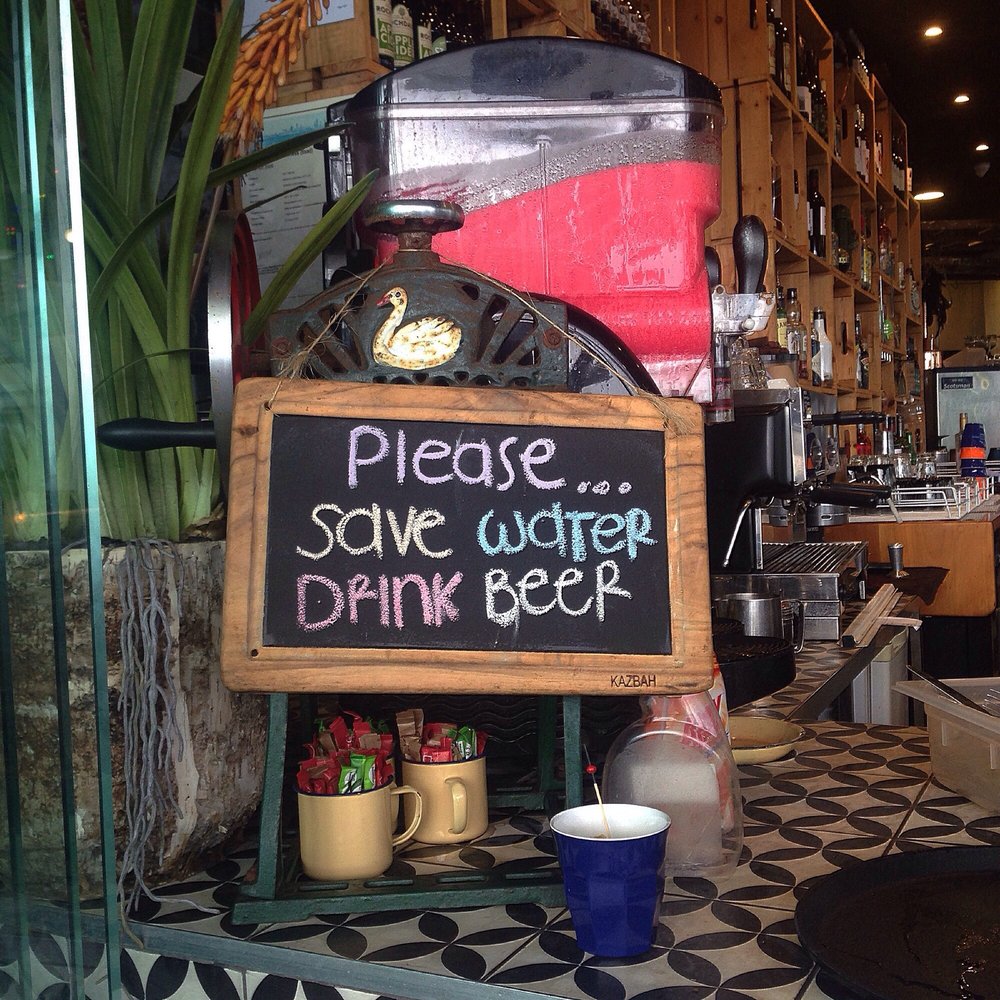 Please...
Save Water
Drink Beer
KAZBAH
Scotsman